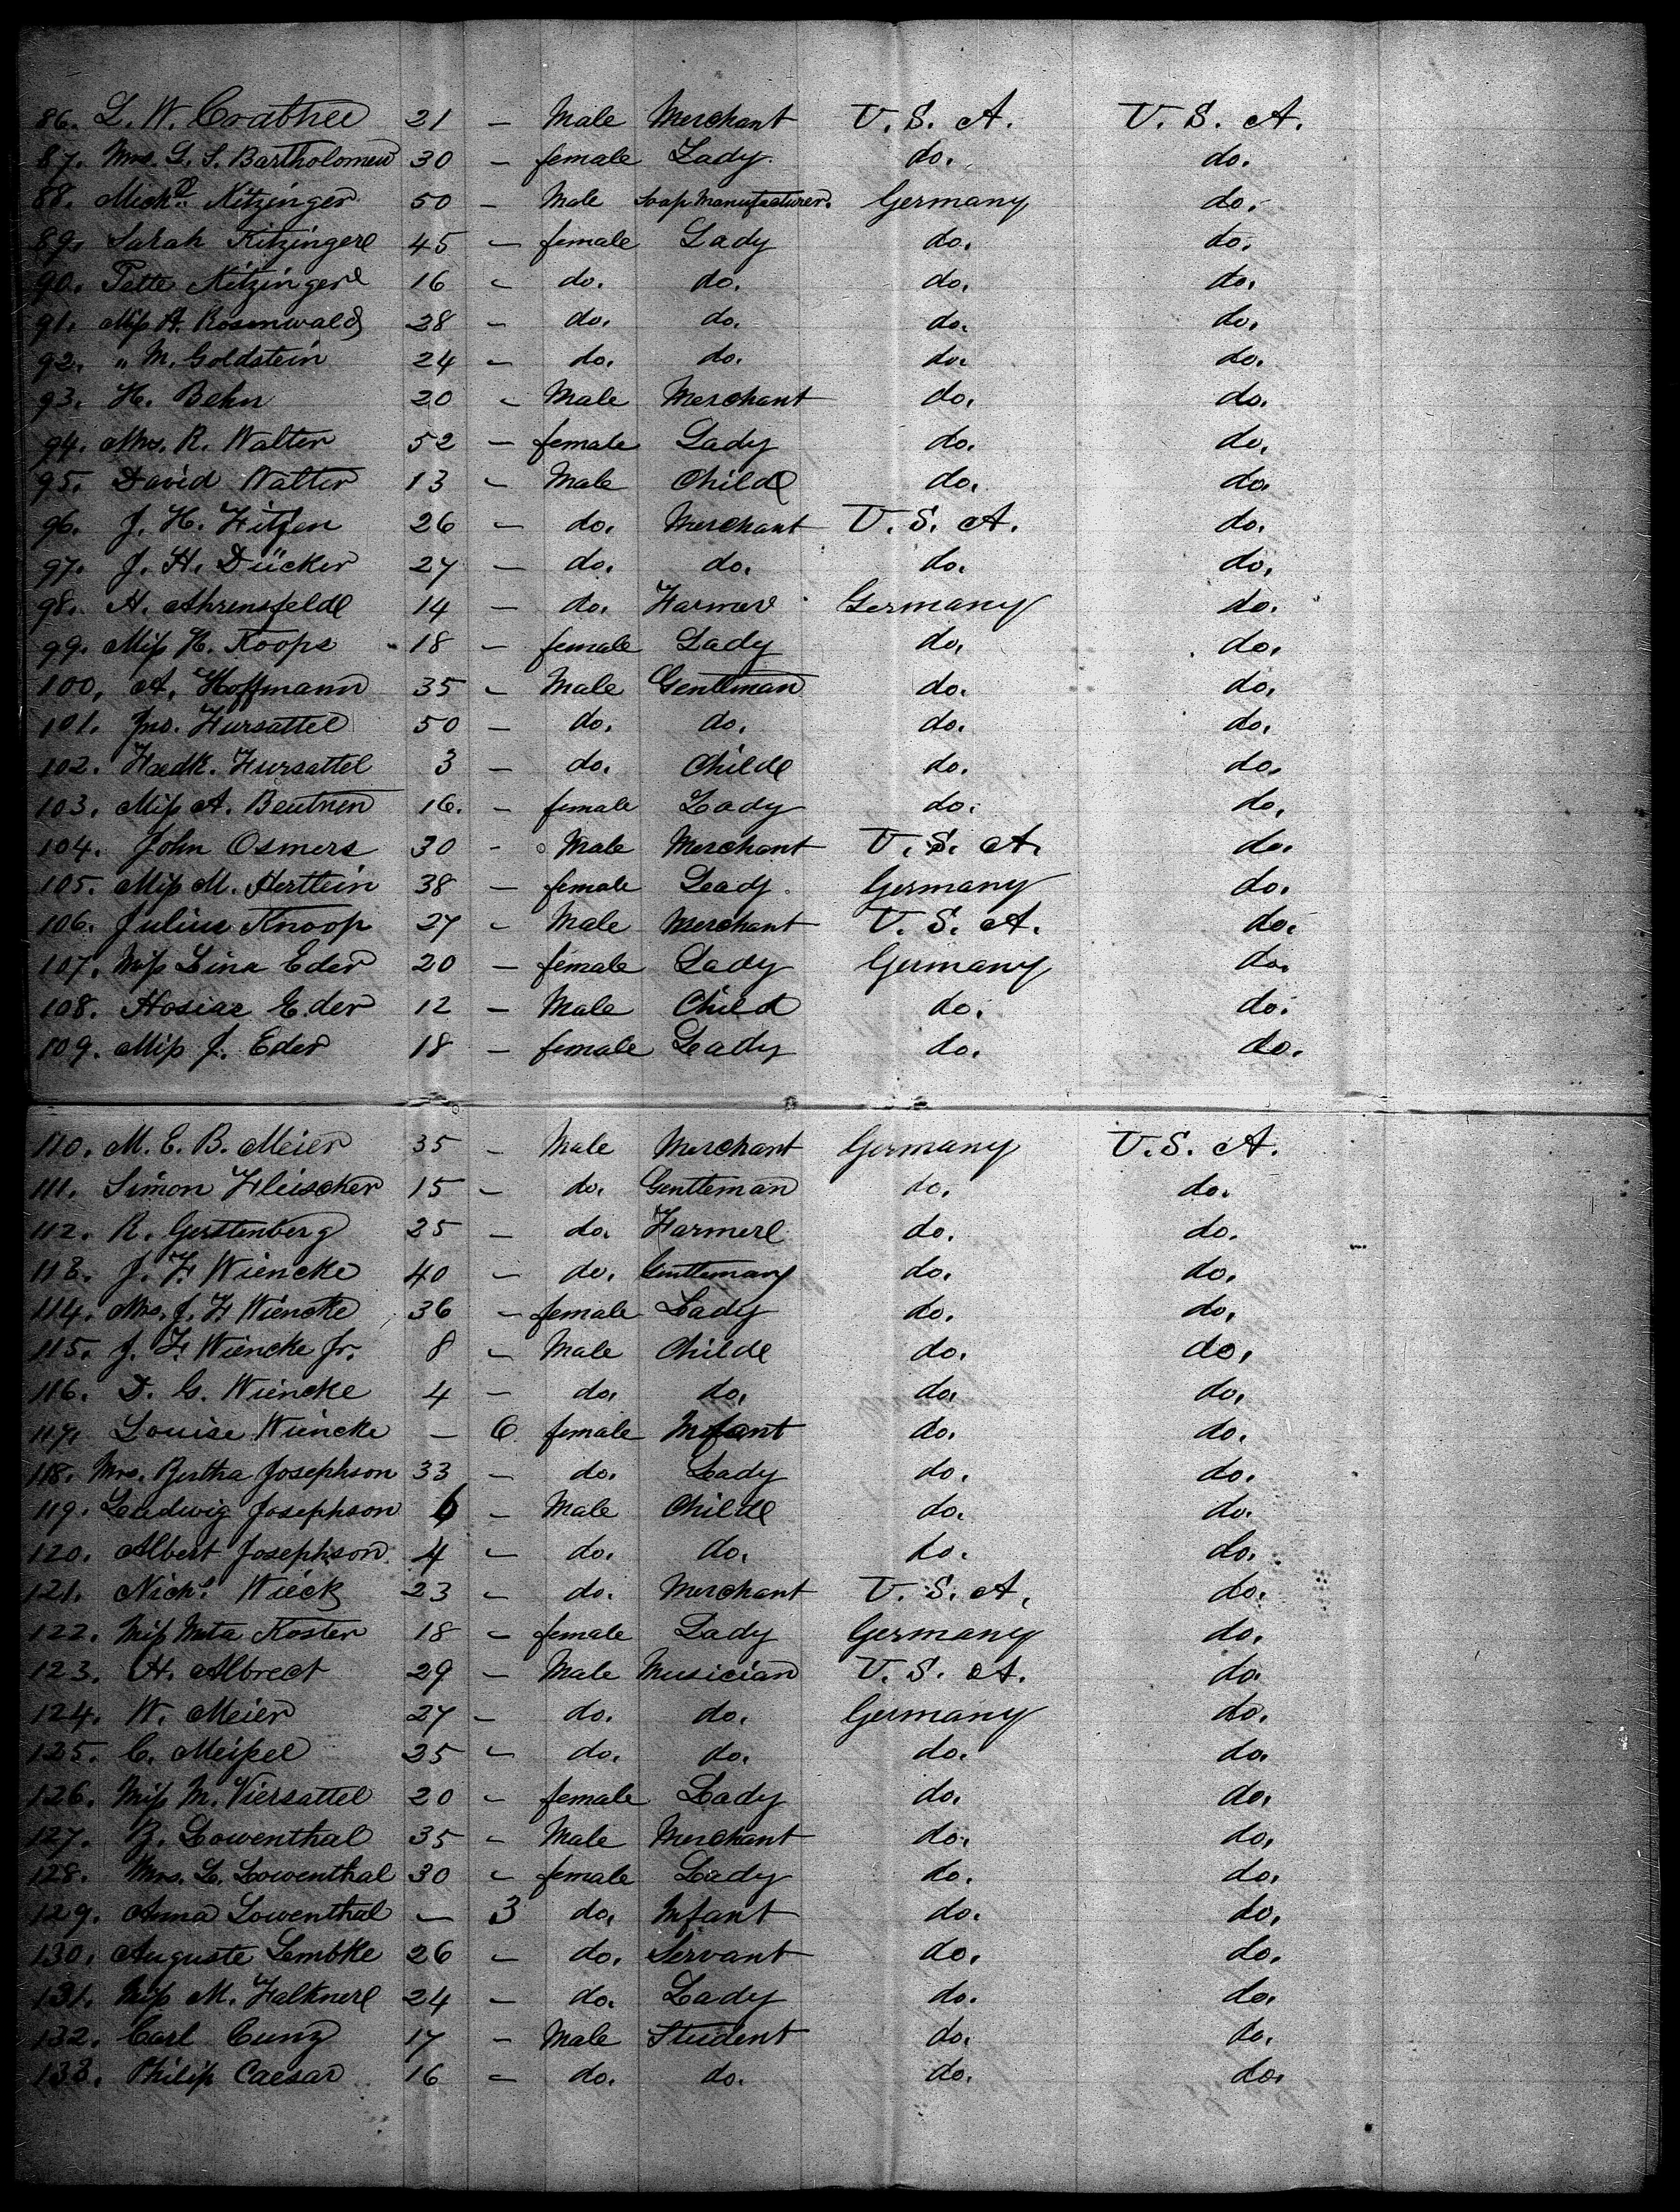 86. L. W. Crabtree 21 – Male Merchant U. S. A. U. S. A.
87. Mrs. L. S. Bartholomew 30 – female Lady do. do.
88. Mich.l Kitzinger 50 – Male Soap Manufacturer. Germany do.
89. Sarah Kitzinger 45 – female Lady do. do.
90. Tette Kitzinger 16 – do. do. do. do.
91. Miss A. Rosenwald 28 – do. do. do. do.
92. " M. Goldstein 24 – do. do. do. do.
93. H. Behn 20 – Male Merchant do. do.
94. Mrs. R. Walter 52 – female Lady do. do.
95. David Walter 13 – Male Child do. do.
96. J. H. Fitjen 26 – do. Merchant U. S. A. do.
97. J. H. Dücker 27 – do. do. do. do.
98. H. Ahrensfeld 14 – do. Farmer Germany do.
99. Miss H. Koops 18 – female Lady do. do.
100. A. Hoffmann 35 – Male Gentleman do. do.
101. Jno. Fursattel 50 – do. do. do. do.
102. Fredk. Fursattel 3 – do. Child do. do.
103. Miss A. Beutnen 16. – female Lady do. do.
104. John Osmers 30 – Male Merchant U. S. A. do.
105. Miss M. Hertlein 38 – female Lady. Germany do.
106. Julius Knoop 27 – Male Merchant U. S. A. do.
107. Miss Lina Eder 20 – female Lady Germany do.
108. Hosiae Eder 12 – Male Child do. do.
109. Miss J. Eder 18 – female Lady do. do.
110. M. E. B. Meier 35 – Male Merchant Germany U. S. A.
111. Simon Fleischer 15 – do. Gentleman do. do.
112. R. Gerstenberg 25 – do. Farmer do. do.
113. J. F. Wiencke 40 – do. Gentleman do. do.
114. Mrs. J. F. Wiencke 36 – female Lady do. do.
115. J. F. Wiencke Jr. 8 – Male Child do. do.
116. D. G. Wiencke 4 – do. do. do. do.
117. Louise Wiencke – 6 female Infant do. do.
118. Mrs. Bertha Josephson 33 – do. Lady do. do.
119. Ludwig Josephson 6 – Male Child do. do.
120. Albert Josephson 4 – do. do. do. do.
121. Nich.s Wieck 23 – do. Merchant U. S. A. do.
122. Miss Meta Koster 18 – female Lady Germany do.
123. H. Albrect 29 – Male Musician U. S. A. do.
124. W. Meier 27 – do. do. Germany do.
125. C. Meissel 25 – do. do. do. do.
126. Miss M. Viersattel 20 – female Lady do. do.
127. B. Lowenthal 35 – Male Merchant do. do.
128. Mrs. L. Lowenthal 30 – female Lady do. do.
129. Anna Lowenthal – 3 do. Infant do. do.
130. Auguste Lembke 26 – do. Servant do. do.
131. Miss M. Falkner 24 – do. Lady do. do.
132. Carl Cunz 17 – Male Student do. do.
133. Philip Caesar 16 – do. do. do. do.